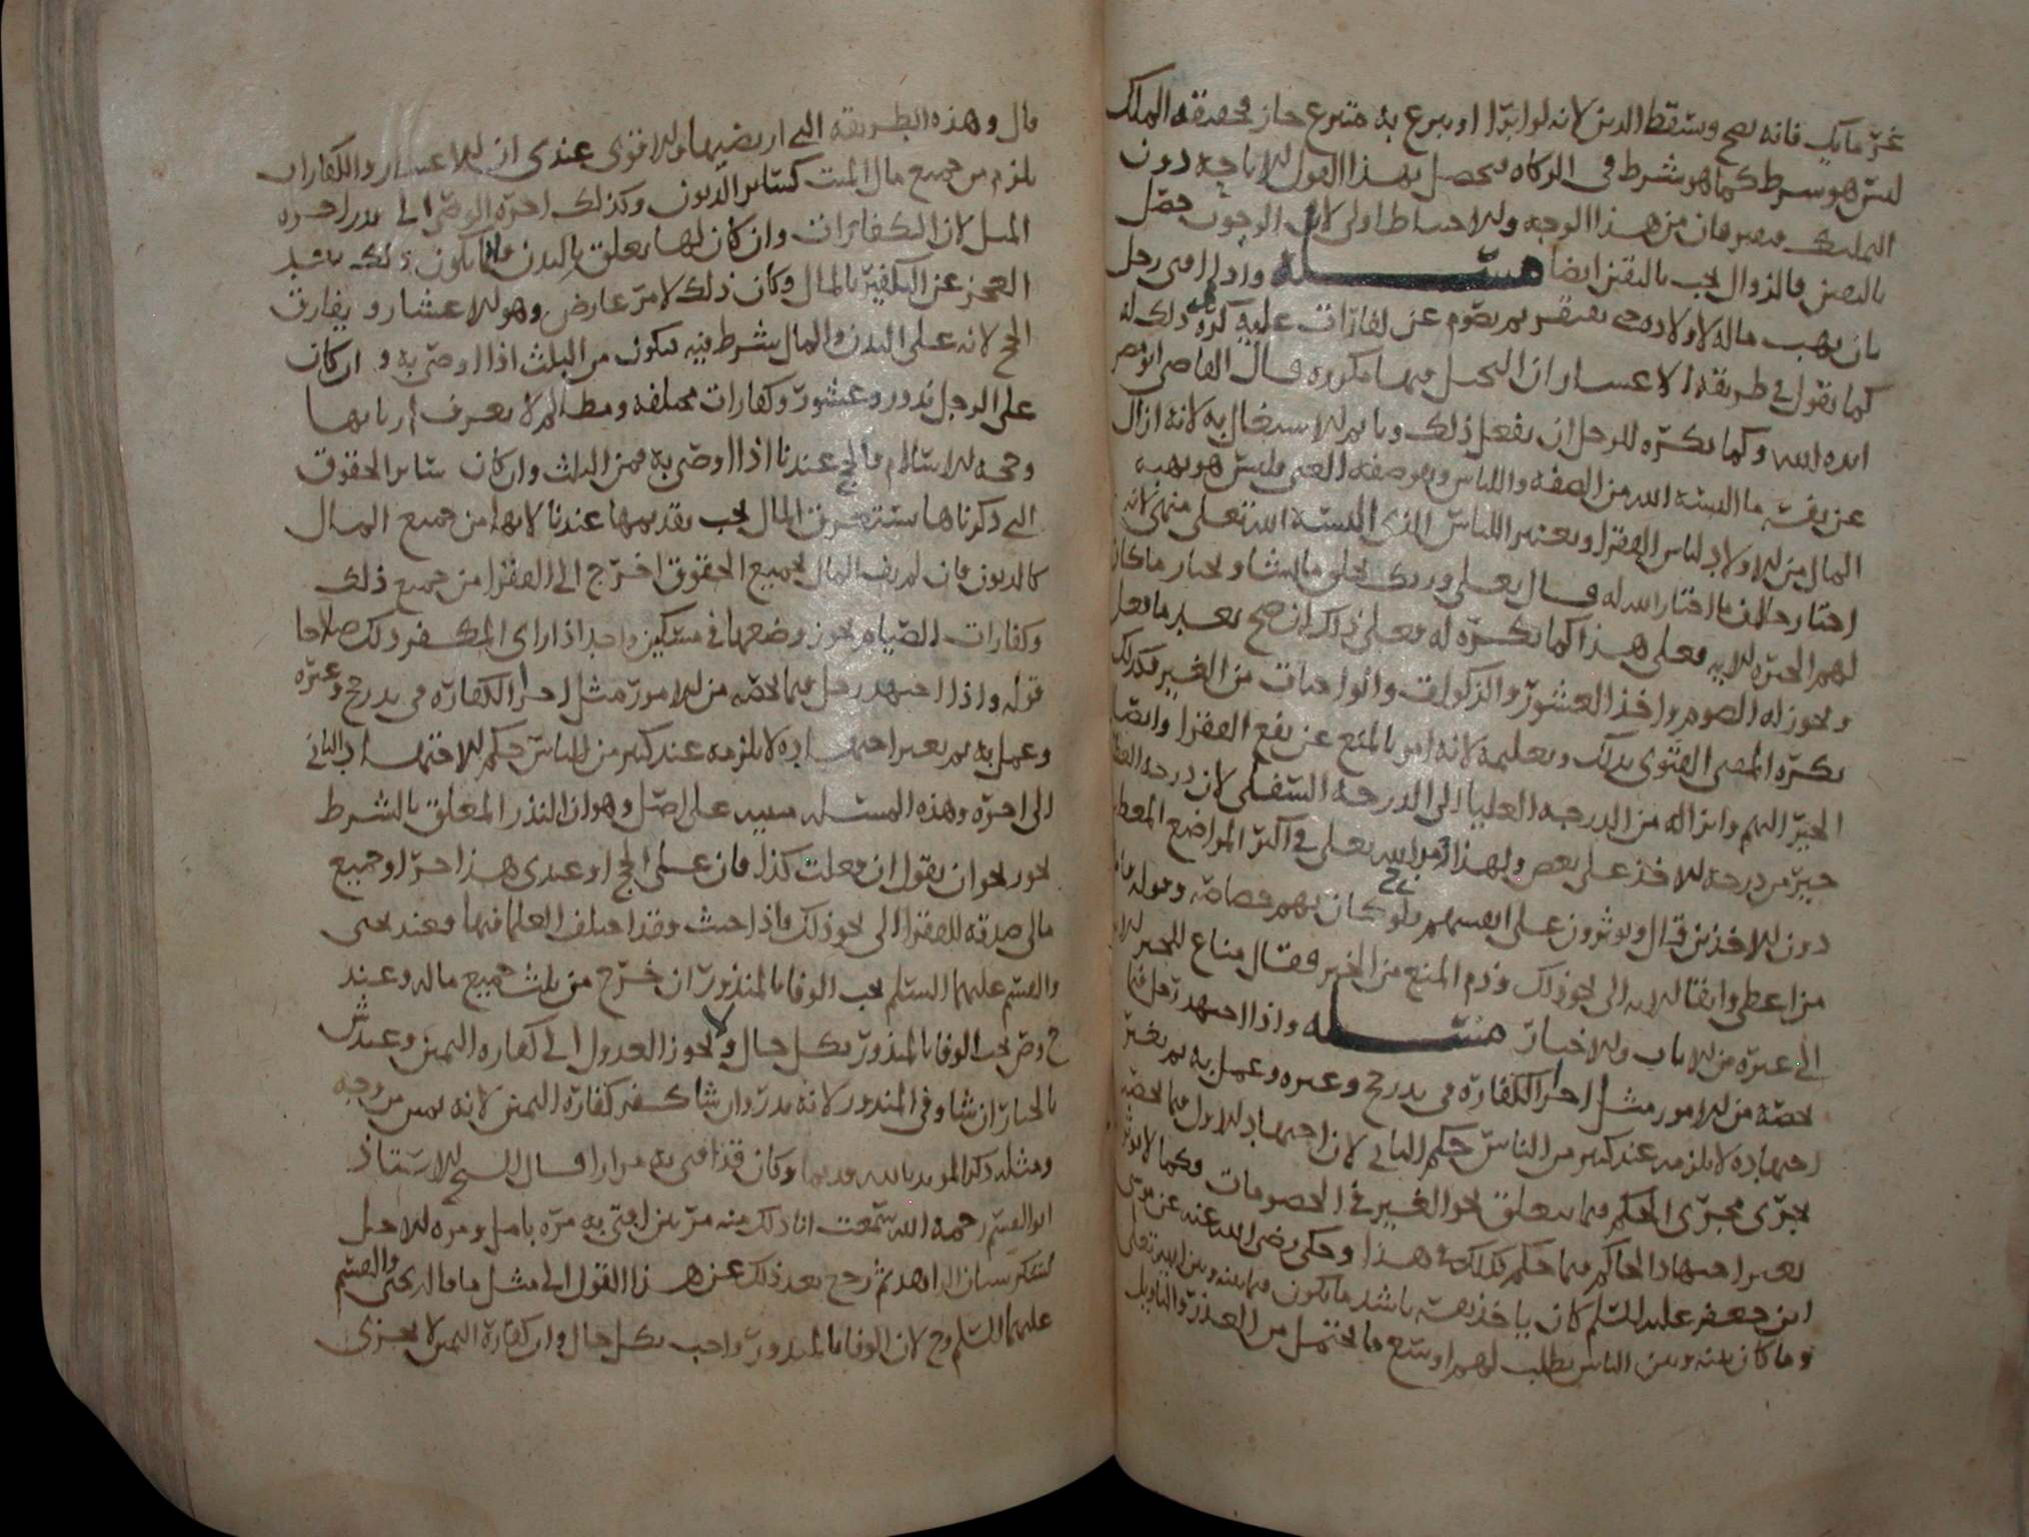 غرماتك فانه يصح ويسقط الدين لانه لو ابرا او تبرع به متبرع جاز فحقيقه الملك
ليس هو بشرط كما هو شرط في الزكاه فيحصل بهذا القول الاباحه دون
التمليك من هذا الوجه والاحتياط اولى لان الوجوب حصل
باليقين فالزوال يجب باليقين ايضا مسئله واذا افتى رجل
بان يهب ماله لاولاده حتى يفتقر ثم يصوم عن كفارات عليه كره ذلك له
كما نقول في طريقه الاعسار ان الحيل فيها مكروهه قال القاضي ابو مضر
ايده الله وكما يكره للرجل ان يفعل ذلك وياثم بالاشتغال به لانه ازال
عن نفسه ما البسه الله من الصفه واللباس وهو صفه الغنى وليس هو بهبه
المال من الاولاد لباس الفقر ويغير اللباس الذي البسه الله تعلى
اختار خلاف ما اختار الله له قال تعلى وربك يخلق ما يشا ويختار ما كان
لهم الخيره الايه فعلى هذا كما يكره له فعلى ذلك ان صح بعد ما فعل
ويجوز له الصوم واخذ العشور والزكوات والواجبات من الغير فكذلك
يكره للمفتي الفتوى بذلك وتعليمه لانه امر بالمنع عن نفع الفقرا وايصال
الخير اليهم وانزاله من الدرجه العليا الى الدرجه السفلى لان درجه
خير من درجه الاخذ على بعض ولهذا امر الله تعلى في اكثر المواضع
دون الاخذين قال ويوثرون على انفسهم ولو كان بهم خصاصه وقوله
من اعطى واتقى الايه الى نحو ذلك وذم المنع من الخير فقال مناع للخير
الى غيره من الايات والاخبار مسئله واذا اجتهد رجل فيما
يخصه من الامور مثل اخراج الكفاره في نذر حج وغيره وعمل به ثم تغير
اجتهاده لا يلزمه عند كثير من الناس حكم الثاني لان اجتهاد الاول فيما يخصه
يجري مجرى الحكم فيما يتعلق بحق الغير في الخصومات وكما لا يوثر
تغير اجتهاد الحاكم فيما حكم كذلك في هذا وحكي رضي الله عنه عن موسى
ابن جعفر عليه السلم كان ياخذ نفسه باشد ما يكون فيما بينه وبين الله تعلى
وما كان بينه وبين الناس يطلب لهم اوسع ما يحتمل من العذر والتاويل
قال وهذه الطريقه التي ارتضيها والاقوى عندي ان الاعشار والكفارات
يلزم من جميع مال الميت كسائر الديون وكذلك اجره الوصي الى قدر اجره
المثل لان الكفارات وان كان لها تعلق بالبدن فانما يكون ذلك عند
العجز عن التكفير بالمال وكان ذلك لامر عارض وهو الاعسار ويفارق
الحج لانه على البدن والمال شرط فيه فيكون من الثلث اذا اوصى به وان كان
على الرجل نذور وعشور وكفارات مختلفه ومظالم لا يعرف اربابها
وحجه الاسلام فالحج عندنا اذا اوصى به فمن الثلث وان كان سائر الحقوق
التي ذكرناها يستغرق المال يجب تقديمها عندنا لانها من جميع المال
كالديون فان لم يف المال بجميع الحقوق اخرج الى الفقرا من جميع ذلك
وكفارات الصيام يجوز وضعها في مسكين واحد اذا راى المكفر ذلك صلاحا
قوله واذا اجتهد رجل فيما يخصه من الامور مثل اخراج الكفاره في نذر حج وغيره
وعمل به ثم تغير اجتهاده لا يلزمه عند كثير من الناس حكم الاجتهاد الثاني
الى اخره وهذه المسئله مبنيه على اصل وهو ان النذر المعلق بالشرط
نحو ان يقول ان فعلت كذا فان علي الحج او عبدي هذا حر او جميع
مالي صدقه للفقرا الى نحو ذلك فاذا حنث وقد اختلف العلما فيها فعند يحيى
والقسم عليهما السلم يجب الوفا بالمنذور ان خرج من ثلث جميع ماله وعند
ح وص يجب الوفا بالمنذور بكل حال ولا يجوز العدول الى كفاره اليمين وعند ش
بالخيار ان شا وفى المنذور لانه نذر وان شا كفر كفاره اليمين لانه يمين من وجه
ومثله ذكر المويد بالله قديما وكان قد افتى به مرارا قال الشيخ الاستاذ
ابو القسم رحمه الله سمعت انا ذلك منه مرتين افتى به مره بامل ومره لاجل
الزاهد ثم رجع بعد ذلك عن هذا القول الى مثل ما قاله يحيى والقسم
عليهما السلم وح لان الوفا بالمنذور واجب بكل حال وان كفاره اليمين لا يجزي